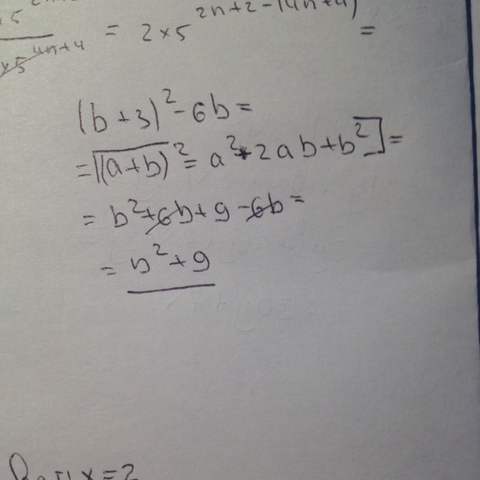 = 2×5^{2n+2-(4n+4)} =
(b+3)²-6b=
=[(a+b)²=a²+2ab+b²]=
=b²+6b+9-6b=
=b²+9
x=2